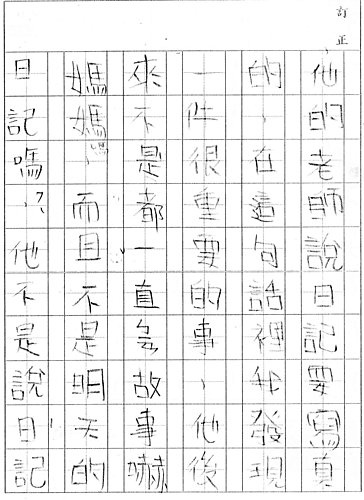 訂正
他的老師說日記要寫真
的，在這句話裡我發現
一件很重要的事，他後
來不是都一直故事嚇
媽媽，而且不是明天的
日記嗎？他不是說日記